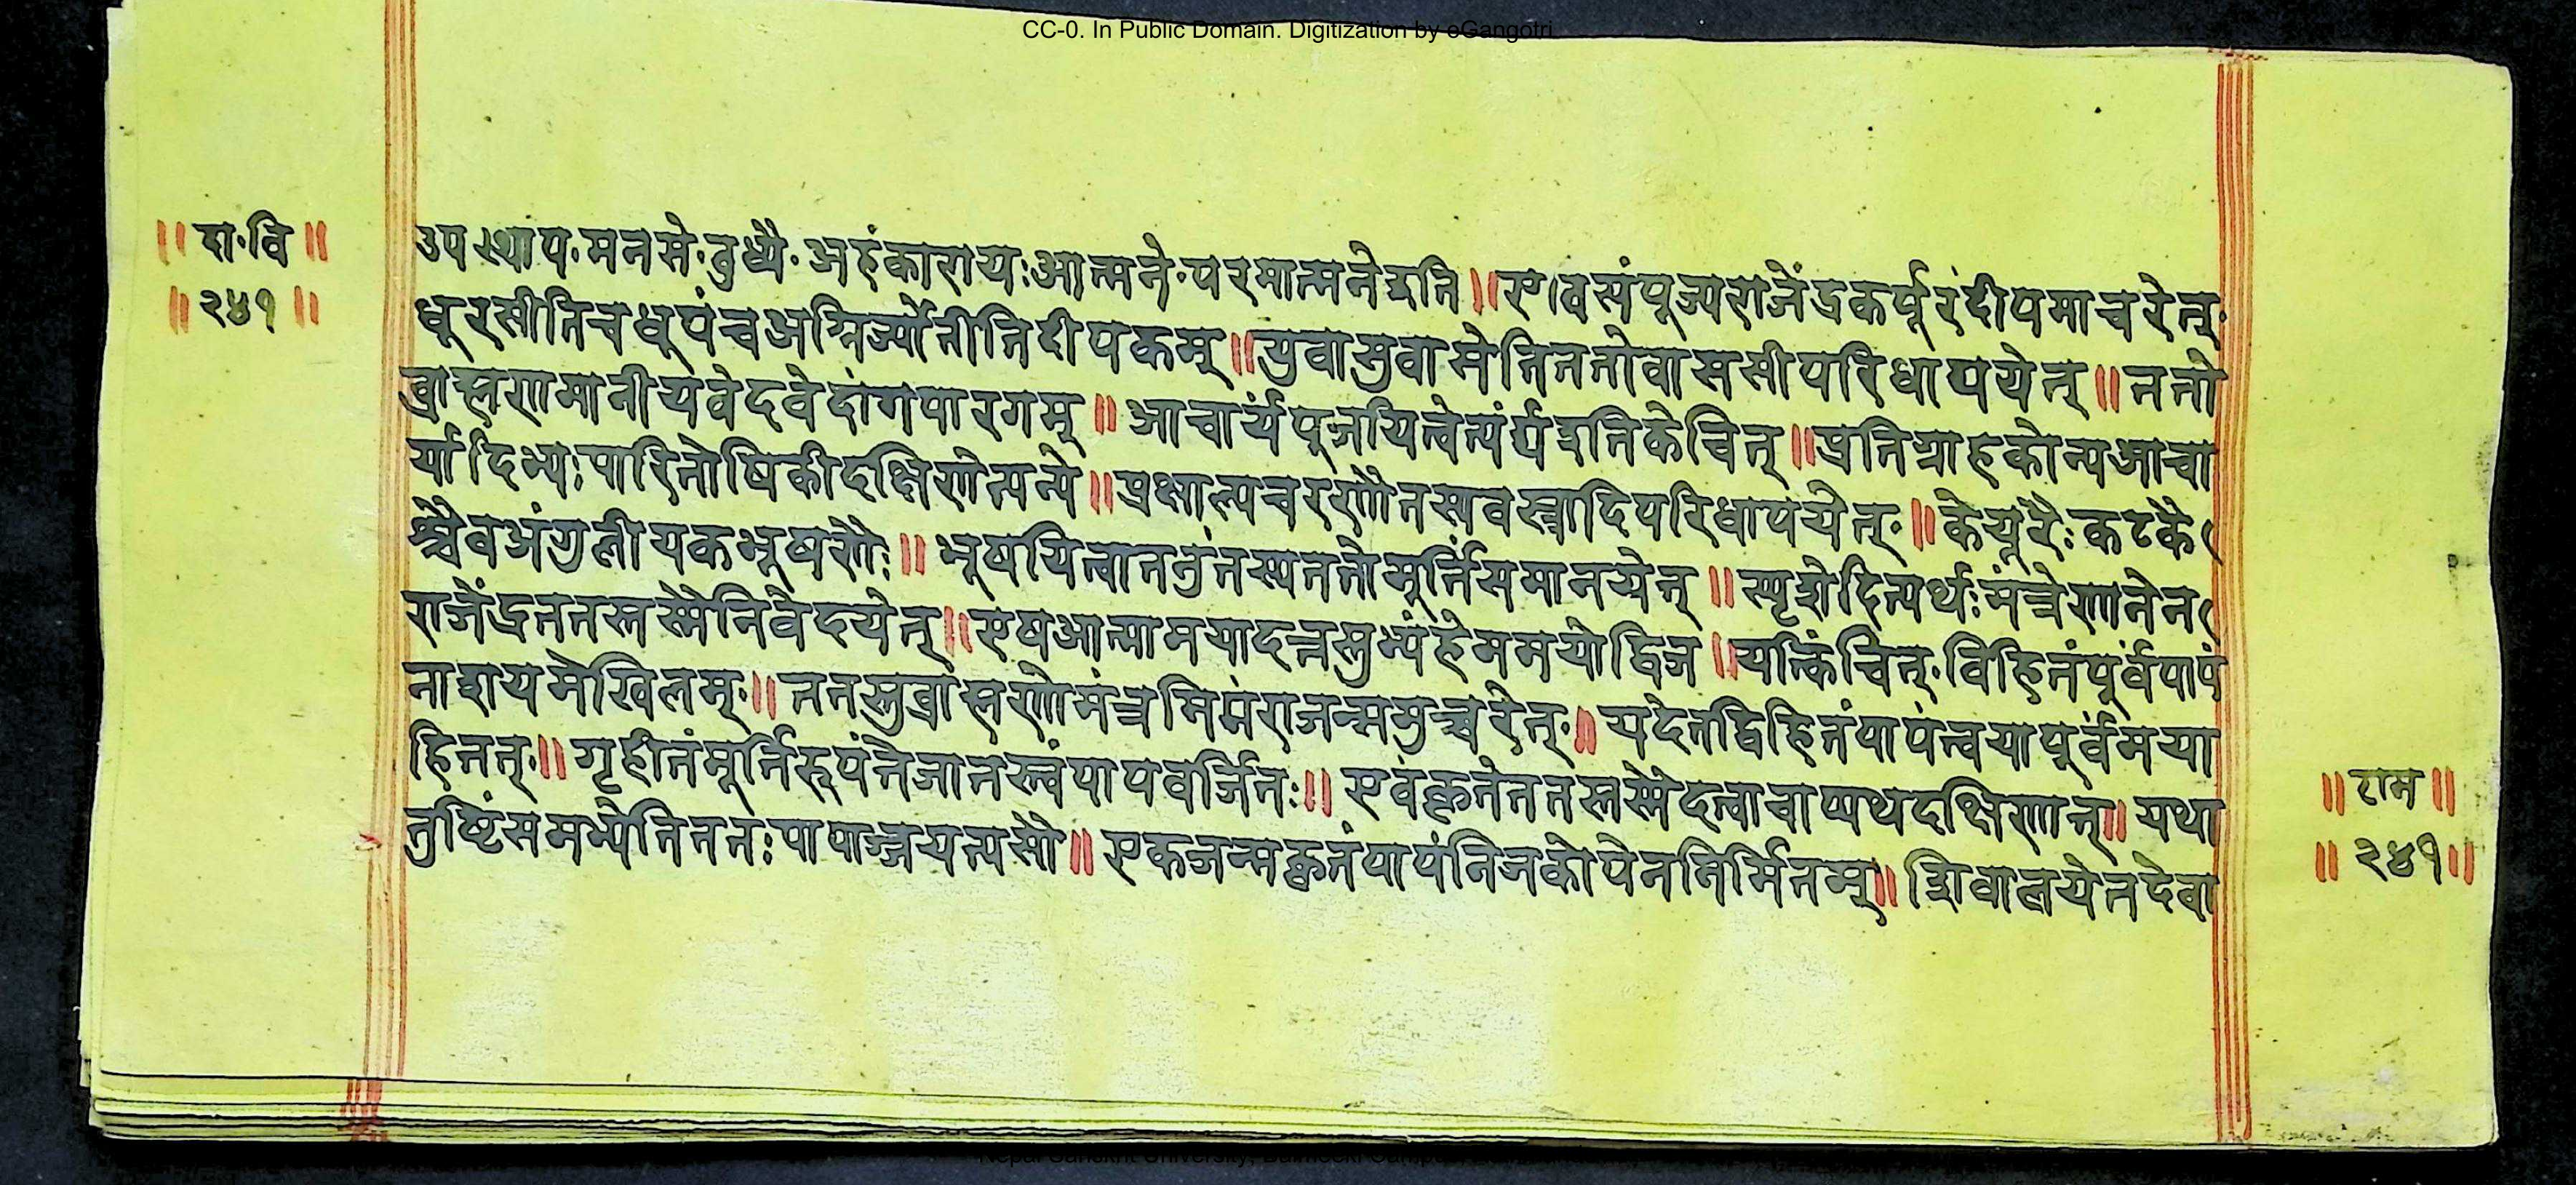 CC-0. In Public Domain. Digitization by eGangotri
॥ दा॰वि ॥
॥ २४१ ॥
उपस्थाय॰मनसे॰वुध्यै॰अहंकाराय॰आत्मने॰परमात्मनेइति॥एवं संपूज्यराजेंद्रकर्पूरंदीपमाचरेत्
धूरसीतिचधूपंचअग्निर्ज्योतीतिदीपकम्॥युवासुवासेतिततोवाससीपरिधापयेत्॥ततो
ब्राह्मणमानीयवेदवेदांगपारगम्॥आचार्यंपूजयित्वेत्यर्घ्यइतिकेचित्॥प्रतिग्राहकोन्यआचा
र्यादिभ्यःपारितोषिकीदक्षिणेत्यन्ये॥प्रक्षाल्यचरणौतस्यवस्त्रादिपरिधापयेत्॥केयूरैःकटकै
श्चैवअंगुलीयकभूषणैः॥भूषयित्वाततुंतस्यततोमूर्तिंसमानयेत्॥स्पृशेदित्यर्थःमंत्रेणतेन
राजेंद्रततस्तस्मैनिवेदयेत्॥एषआत्मामयादत्तस्तुभ्यंहेममयोद्विज॥यत्किंचित्॰विहितंपूर्वंपापं
नाशयमेखिलम्॥ततस्तुब्राह्मणोमंत्रमिमंराजन्समुच्चरेत्॥यदेतद्विहितंपापंत्वयापूर्वंमया
हितत्॥गृहीतंमूर्तिरूपंतैजातस्त्वंपापवर्जितः॥एवंकृतेततस्तस्मैदत्वाचाप्यथदक्षिणाम्॥यथा
तुष्टिंसमभ्येतिततःपापाज्जयत्यसौ॥एकजन्मकृतंपापंनिजकोपेननिर्मितम्॥शिवालयेतदेवा
॥ राम ॥
॥ २४१ ॥